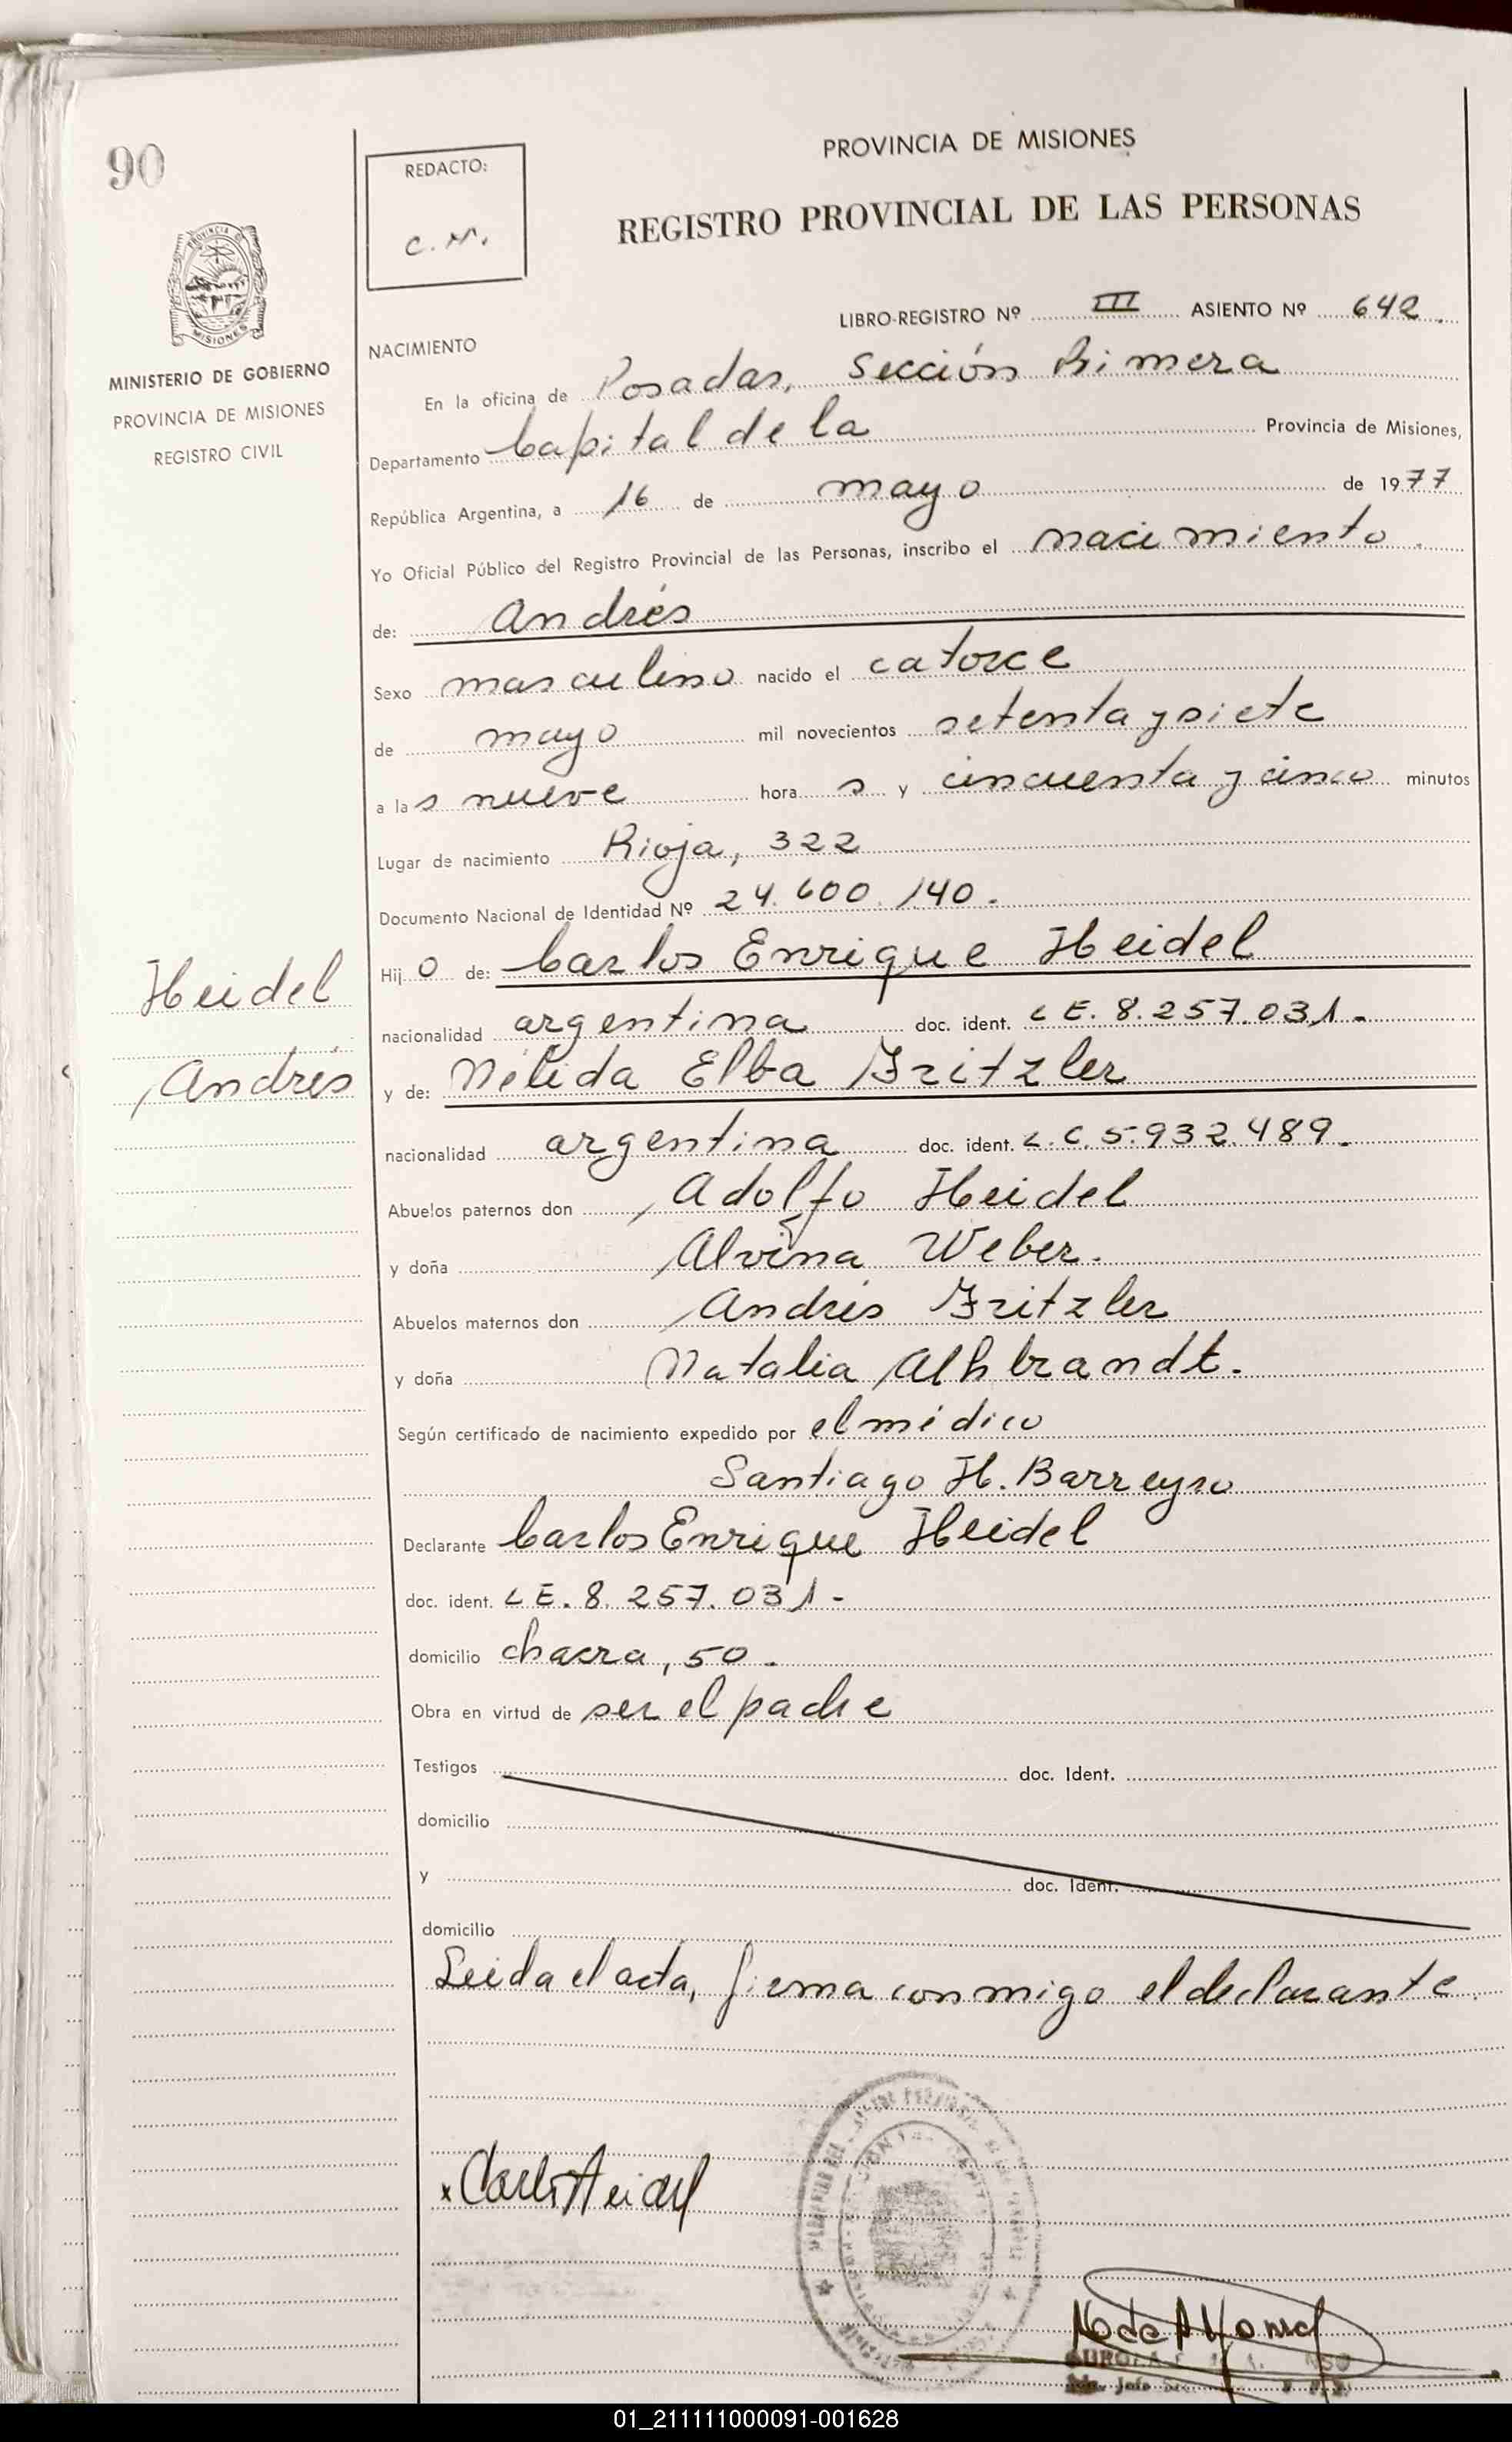 90
REDACTO:
C. M.
PROVINCIA DE MISIONES
REGISTRO PROVINCIAL DE LAS PERSONAS
PROVINCIA DE
MISIONES
MINISTERIO DE GOBIERNO
PROVINCIA DE MISIONES
REGISTRO CIVIL
LIBRO-REGISTRO Nº III ASIENTO Nº 642.
NACIMIENTO
En la oficina de Posadas, Sección Primera
Departamento Capital de la Provincia de Misiones,
República Argentina, a 16 de mayo de 1977
Yo Oficial Público del Registro Provincial de las Personas, inscribo el nacimiento.
de: Andrés
Sexo masculino nacido el catorce
de mayo mil novecientos setenta y siete
a las nueve horas y cincuenta y cinco minutos
Lugar de nacimiento Rioja, 322
Documento Nacional de Identidad Nº 24.600.140.
Heidel
Andrés
Hijo de: Carlos Enrique Heidel
nacionalidad argentina doc. ident. L E. 8.257.031.
y de: Nélida Elba Fritzler
nacionalidad argentina doc. ident. L. C. 5.932.489.
Abuelos paternos don Adolfo Heidel
y doña Alvina Weber.
Abuelos maternos don Andrés Fritzler
y doña Natalia Alhbrandt.
Según certificado de nacimiento expedido por el médico
Santiago H. Barreyro
Declarante Carlos Enrique Heidel
doc. ident. L E. 8. 257. 031-
domicilio chacra, 50.
Obra en virtud de ser el padre
Testigos doc. Ident.
domicilio
y doc. Ident.
domicilio
Leida el acta, firma conmigo el declarante.
x Carlos Heidel
01_211111000091-001628